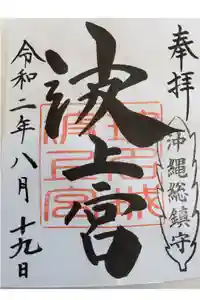 奉拝
沖縄総鎮守
波上宮
令和二年八月十九日